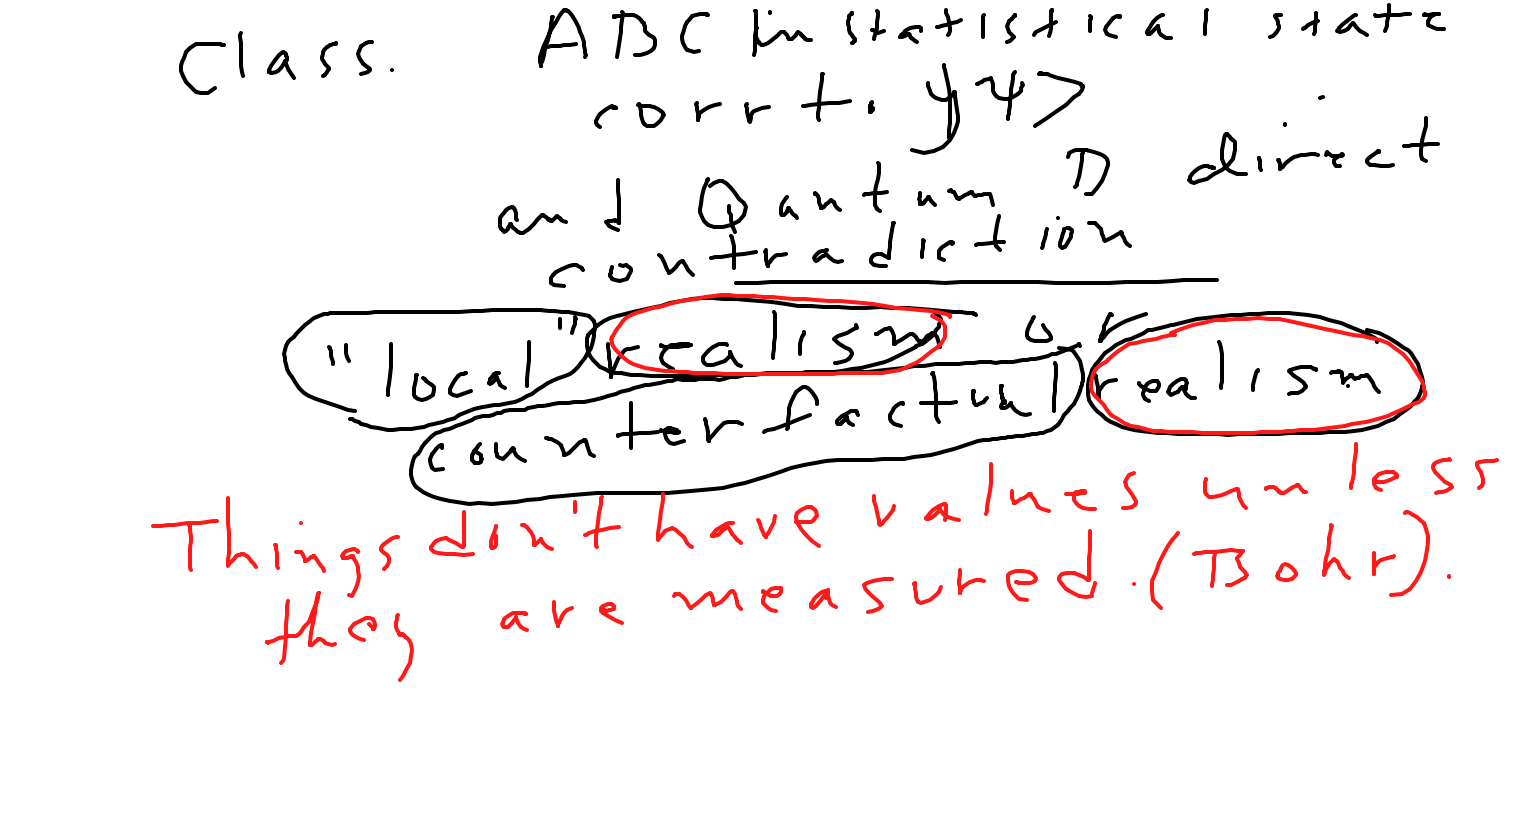 Class. ABC in statistical state
corrt. y ψ>
and Qantum D direct
contradiction
"local" realism or
counterfactual realism
Things don't have values unless
they are measured. (Bohr).